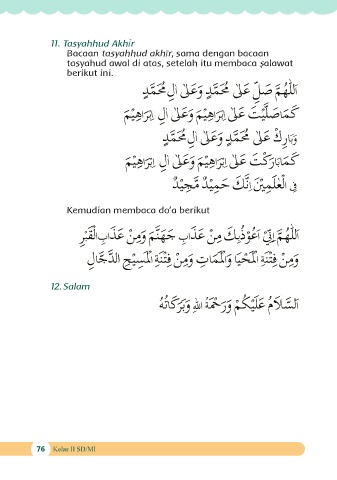 11. Tasyahhud Akhir
Bacaan tasyahhud akhir, sama dengan bacaan
tasyahud awal di atas, setelah itu membaca ṣalawat
berikut ini.
اَللّٰهُمَّ صَلِّ عَلَى مُحَمَّدٍ وَعَلَى اٰلِ مُحَمَّدٍ
كَمَاصَلَّيْتَ عَلَى اِبْرَاهِيْمَ وَعَلَى اٰلِ اِبْرَاهِيْمَ
وَبَارِكْ عَلَى مُحَمَّدٍ وَعَلَى اٰلِ مُحَمَّدٍ
كَمَابَارَكْتَ عَلَى اِبْرَاهِيْمَ وَعَلَى اٰلِ اِبْرَاهِيْمَ
فِى الْعٰلَمِيْنَ اِنَّكَ حَمِيْدٌ مَّجِيْدٌ
Kemudian membaca do'a berikut
اَللّٰهُمَّ اِنِّيْ اَعُوْذُبِكَ مِنْ عَذَابِ جَهَنَّمَ وَمِنْ عَذَابِ الْقَبْرِ
وَمِنْ فِتْنَةِ الْمَحْيَا وَالْمَمَاتِ وَمِنْ فِتْنَةِ الْمَسِيْحِ الدَّجَّالِ
12. Salam
اَلسَّلَامُ عَلَيْكُمْ وَرَحْمَةُ اللهِ وَبَرَكَاتُهُ
76 Kelas II SD/MI